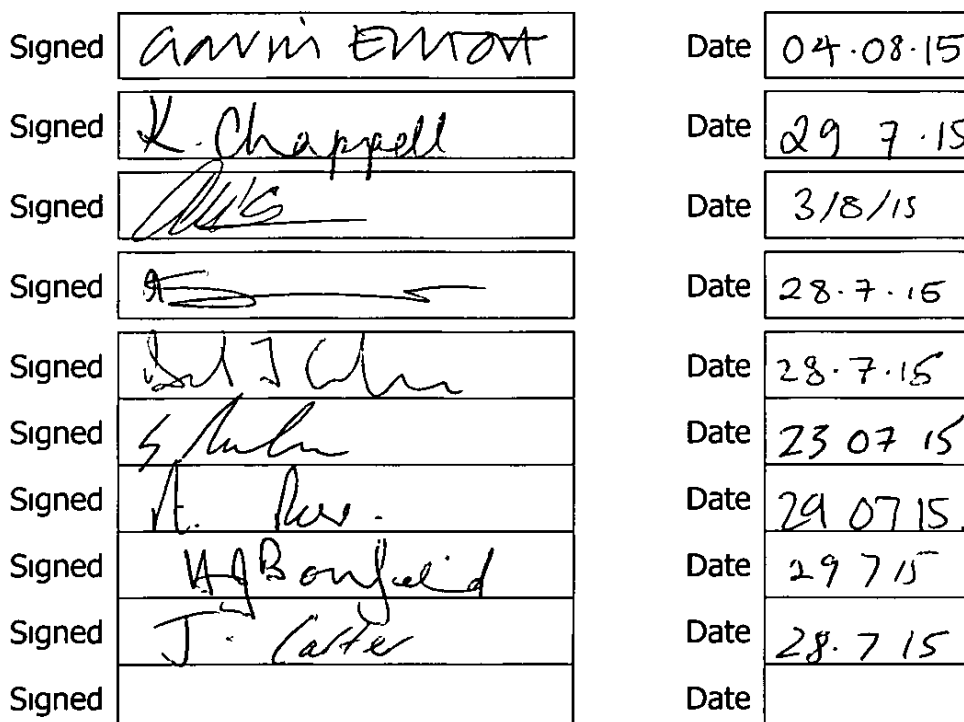 Signed Gavin Elliott Date 04.08.15
Signed K. Chappell Date 29 7.15
Signed Date 3/8/15
Signed Date 28.7.15
Signed Date 28.7.15
Signed S Date 23 07 15
Signed A. Date 29 07 15
Signed Bonfield Date 29 7 15
Signed J. Carter Date 28.7 15
Signed Date